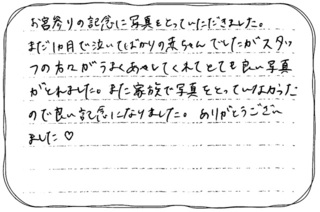 お宮参りの記念に写真をとっていただきました。
まだ1か月で泣いてばかりの赤ちゃんでしたがスタッ
フの方々がうまくあやしてくれてとても良い写真
がとれました。また家族で写真をとっていなかった
ので良い記念になりました。ありがとうござい
ました♡